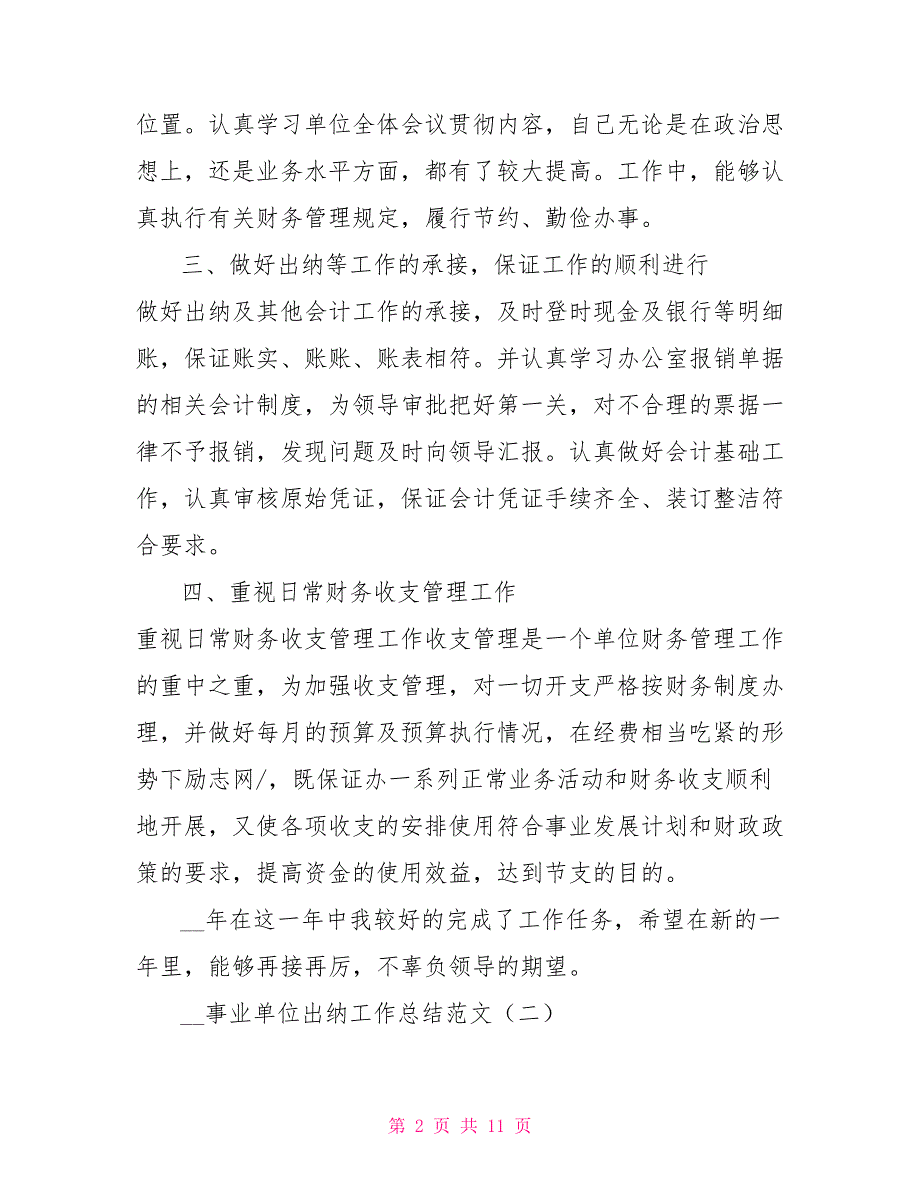 位置。认真学习单位全体会议贯彻内容，自己无论是在政治思
想上，还是业务水平方面，都有了较大提高。工作中，能够认
真执行有关财务管理规定，履行节约、勤俭办事。
三、做好出纳等工作的承接，保证工作的顺利进行
做好出纳及其他会计工作的承接，及时登时现金及银行等明细
账，保证账实、账账、账表相符。并认真学习办公室报销单据
的相关会计制度，为领导审批把好第一关，对不合理的票据一
律不予报销，发现问题及时向领导汇报。认真做好会计基础工
作，认真审核原始凭证，保证会计凭证手续齐全、装订整洁符
合要求。
四、重视日常财务收支管理工作
重视日常财务收支管理工作收支管理是一个单位财务管理工作
的重中之重，为加强收支管理，对一切开支严格按财务制度办
理，并做好每月的预算及预算执行情况，在经费相当吃紧的形
势下励志网/，既保证办一系列正常业务活动和财务收支顺利
地开展，又使各项收支的安排使用符合事业发展计划和财政政
策的要求，提高资金的使用效益，达到节支的目的。
__年在这一年中我较好的完成了工作任务，希望在新的一
年里，能够再接再厉，不辜负领导的期望。
__事业单位出纳工作总结范文（二）
第 2 页 共 11 页